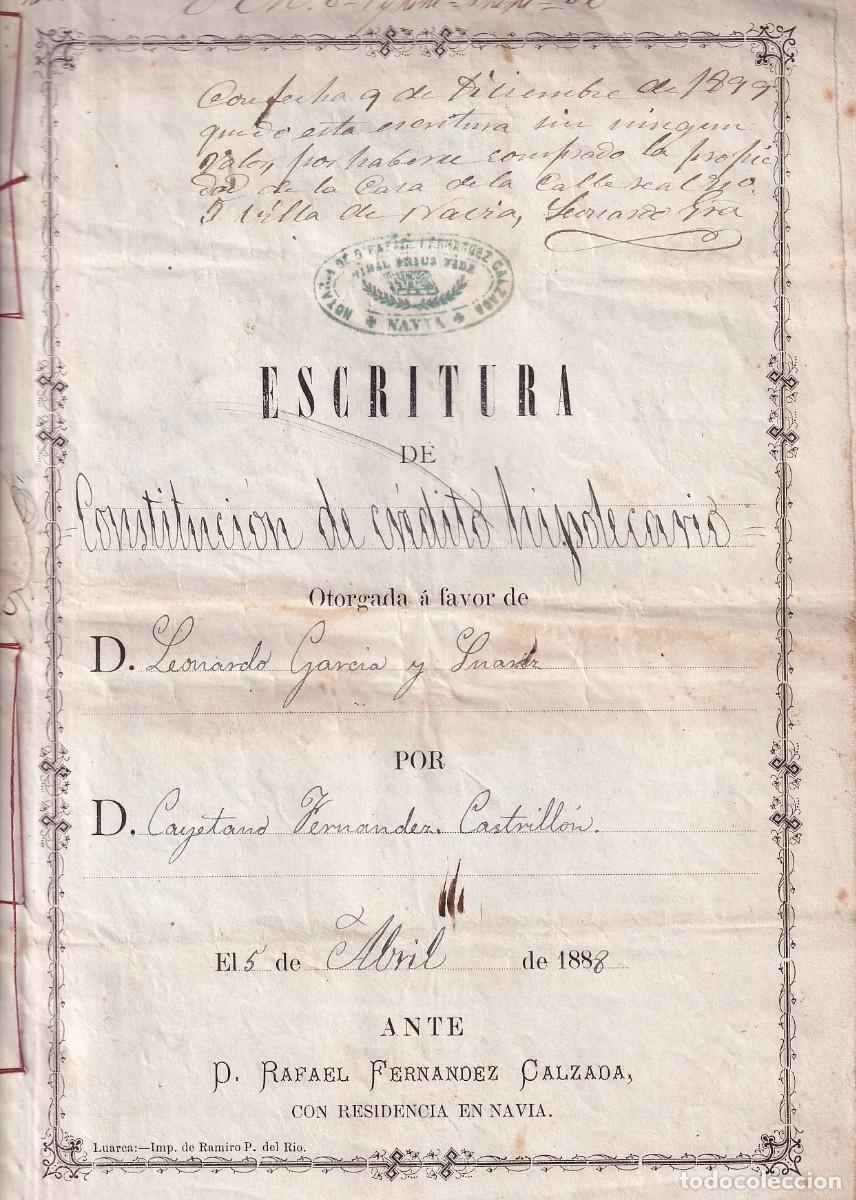 Con fecha 9 de Diciembre de 1899
quedo esta escritura sin ningun
valor, por haberse comprado la propie
dad de la Casa de la Calle real
5 Villa de Navia, Leonardo Gra
NOTARÍA DE D. RAFAEL FERNANDEZ CALZADA
NIHIL PRIUS FIDE
NAVIA
ESCRITURA
DE
Constitución de crédito hipotecario =
Otorgada á favor de
D. Leonardo Garcia y Suarez
POR
D. Cayetano Fernandez Castrillón.
El 5 de Abril de 1888
ANTE
D. RAFAEL FERNANDEZ CALZADA,
CON RESIDENCIA EN NAVIA.
Luarca:—Imp. de Ramiro P. del Rio.
todocoleccion